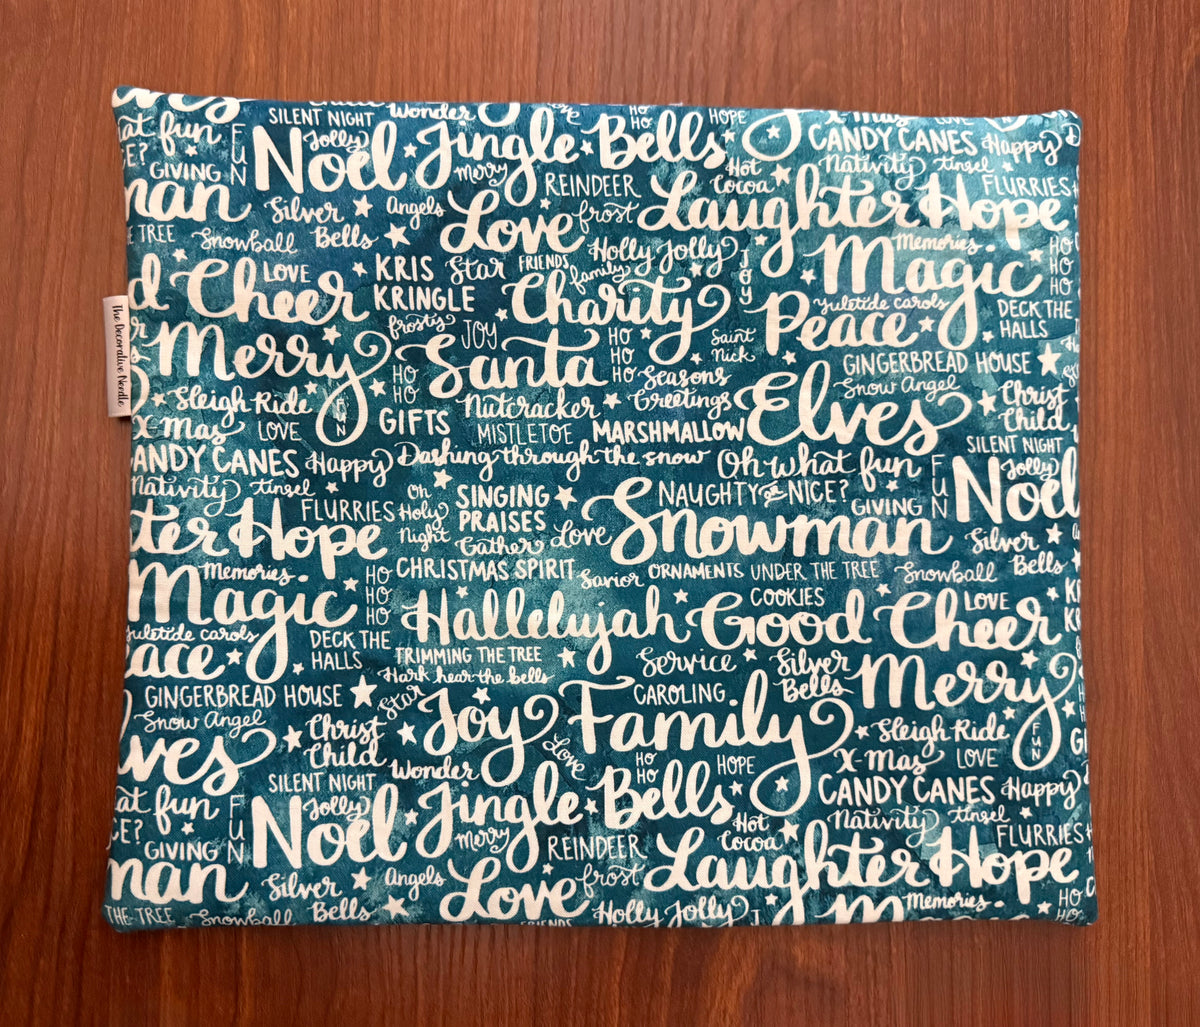 Wonder
SILENT NIGHT
Jolly
Noël
Jingle Bells
HO
HO
HOPE
X-Mas
LOVE
CANDY CANES
Happy
at fun
FUN
GIVING
merry
REINDEER
Hot
Cocoa
Nativity
tinsel
FLURRIES
man
Silver
Bells
Angels
Love
frost
Laughter
Hope
TREE
Snowball
FRIENDS
Holly Jolly
family
JOY
Memories
Magic
HO
HO
HO
Cheer
LOVE
KRIS
KRINGLE
Star
Charity
yuletide carols
Peace
DECK THE
HALLS
The Decorative Needle
Merry
frosty
JOY
Santa
HO
HO
HO
Saint
Nick
GINGERBREAD HOUSE
HO
HO
Seasons
Greetings
Elves
Snow Angel
Christ
Child
Sleigh Ride
FUN
X-Mas
LOVE
GIFTS
Nutcracker
MISTLETOE
MARSHMALLOW
SILENT NIGHT
ANDY CANES
Happy
Dashing through the snow
Oh what fun
FUN
Jolly
Noël
Nativity
tinsel
FLURRIES
Oh
Holy
Night
SINGING
PRAISES
NAUGHTY or NICE?
GIVING
ter
Hope
Gather
Love
Snowman
Silver
Bells
Memories
Magic
HO
HO
HO
CHRISTMAS SPIRIT
Savior
ORNAMENTS
UNDER THE TREE
Snowball
Hallelujah
COOKIES
Good Cheer
LOVE
yuletide carols
ace
DECK THE
HALLS
TRIMMING THE TREE
Hark hear the bells
Service
Silver
Bells
Merry
FUN
GINGERBREAD HOUSE
Snow Angel
Star
Joy
CAROLING
Family
Sleigh Ride
Christ
Child
Love
X-Mas
LOVE
lves
Wonder
SILENT NIGHT
HO
HO
HOPE
CANDY CANES
Happy
at fun
FUN
Jolly
Noël
Jingle Bells
Hot
Cocoa
Nativity
tinsel
FLURRIES
GIVING
merry
REINDEER
Laughter
Hope
man
Silver
Bells
Angels
Love
frost
THE TREE
Snowball
FRIENDS
Holly Jolly
Memories
HO
HO